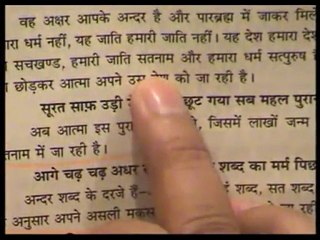 वह अक्षर आपके अन्दर है और पारब्रह्म में जाकर मिल
धर्म नहीं, यह जाति हमारी जाति नहीं। यह देश हमारा दे
सचखण्ड, हमारी जाति सतनाम और हमारा धर्म सत्पुरुष है
छोड़कर आत्मा अपने उस को जा रही है।
सूरत साफ़ उड़ी छूट गया सब महल पुरा
अब आत्मा इस पुरा जिसमें लाखों जन्म
तनाम में जा रही है।
आगे चढ़ चढ़ अधर शब्द का मर्म पिछ
अन्दर शब्द के दरजे हैं– शब्द, सत शब्द
अनुसार अपने असली मक